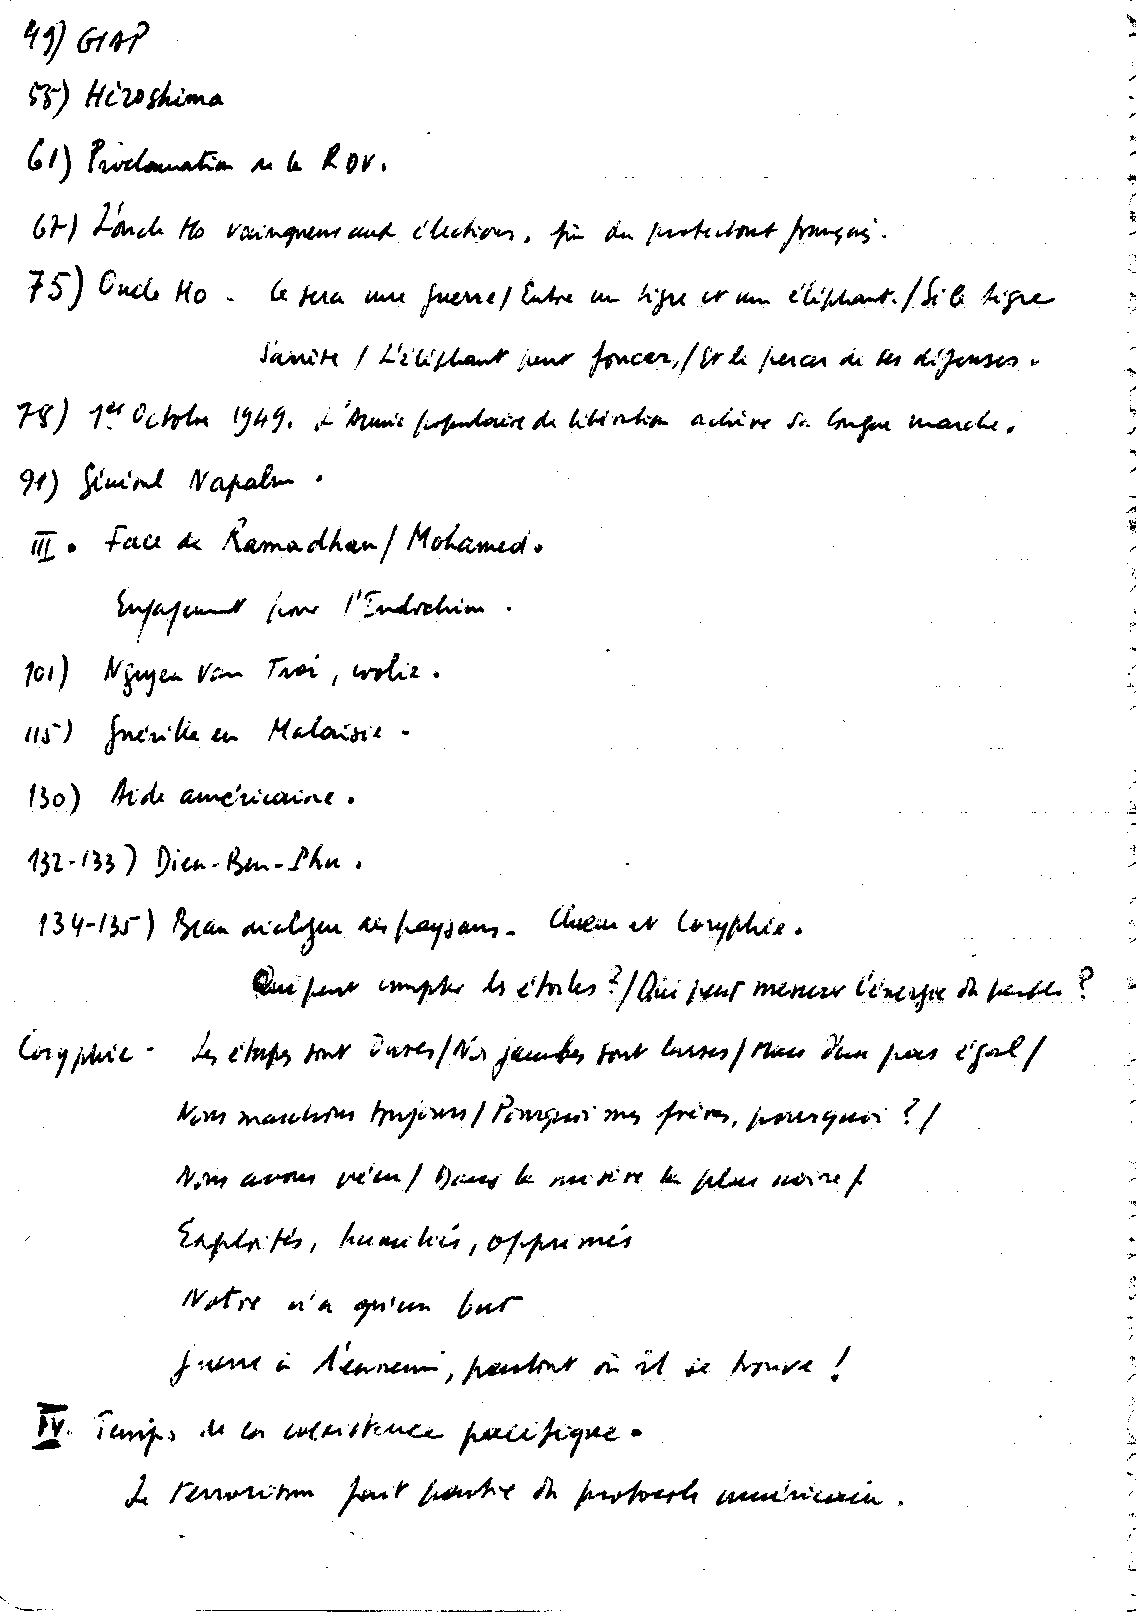 49) GIAP
55) Hiroshima
61) Proclamation de la RDV.
67) L'oncle Ho vainqueur aux élections, fin du protectorat français.
75) Oncle Ho - Ce sera une guerre / Entre un tigre et un éléphant. / Si le tigre
S'arrête / L'éléphant peut foncer, / Et le percer de ses défenses.
78) 1er Octobre 1949. L'Armée populaire de libération achève sa longue marche.
91) Général Napalm.
III. Face de Ramadhan / Mohamed.
Engagement pour l'Indochine.
101) Nguyen Van Troi,
115) Guérilla en Malaisie -
130) Aide américaine.
132-133) Dien-Ben-Phu.
134-135) Beau dialogue des paysans - Chœur et Coryphée.
Qui peut compter les étoiles ? / Qui peut mesurer l'énergie du peuple ?
Coryphée - Les étapes sont dures / Nos jambes sont lasses / Mais d'un pas égal /
Nous marchons toujours / Pourquoi mes frères, pourquoi ? /
Nous avons vécu / Dans la misère la plus noire /
Exploités, humiliés, opprimés
Notre n'a qu'un but
Guerre à l'ennemi, partout où il se trouve !
IV. Temps de la coexistence pacifique.
Le terrorisme fait partie du protocole américain.